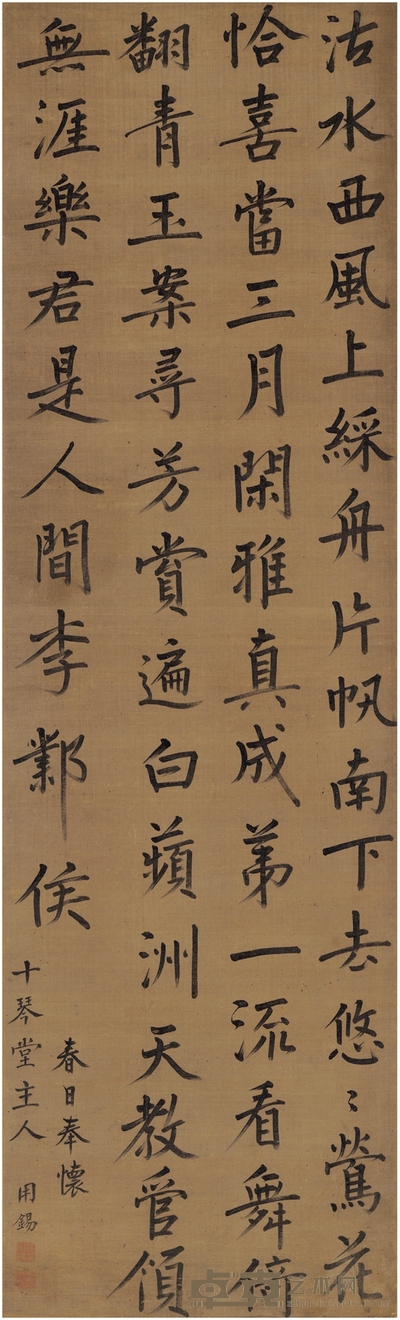 沽水西風上綵舟片帆南下去悠〻鶯花
恰喜當三月閑雅真成苐一流看舞倚
翻青玉案尋芳賞遍白蘋洲天教管領
無涯樂君是人間李鄴侯
春日奉懷
十琴堂主人 用錫
艺术网